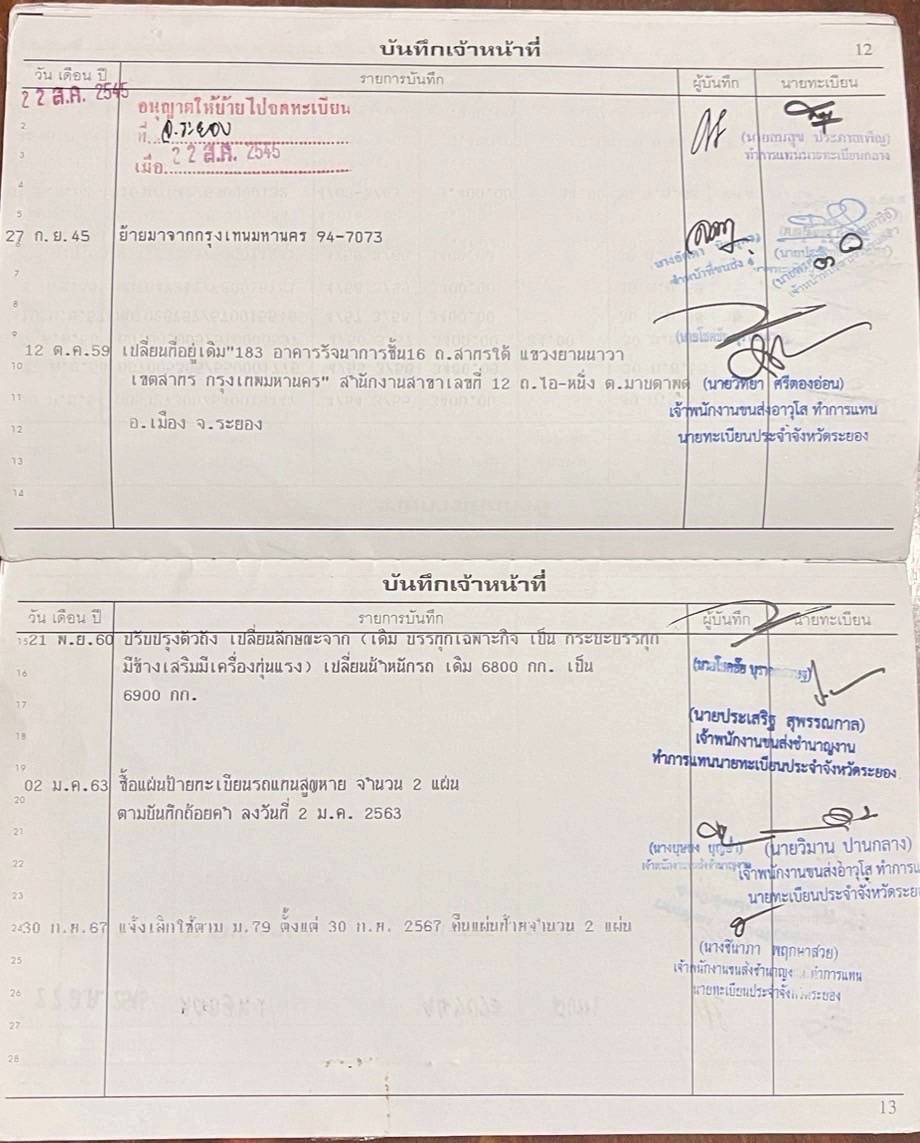 บันทึกเจ้าหน้าที่
12
วัน เดือน ปี
รายการบันทึก
ผู้บันทึก
นายทะเบียน
22 ส.ค. 2545
อนุญาตให้ย้ายไปจดทะเบียน
ที่ จ.ระยอง
เมื่อ 22 ส.ค. 2545
2
3
4
5
27 ก.ย.45 ย้ายมาจากกรุงเทพมหานคร 94-7073
7
8
9
12 ต.ค.59 เปลี่ยนที่อยู่เดิม"183 อาคารรัจนาการชั้น16 ถ.สาทรใต้ แขวงยานนาวา
10
เขตสาทร กรุงเทพมหานคร" สำนักงานสาขาเลขที่ 12 ถ.ไอ-หนึ่ง ต.มาบตาพุด
(นายวิทยา ศรีตองอ่อน)
11
เจ้าพนักงานขนส่งอาวุโส ทำการแทน
12
อ.เมือง จ.ระยอง
นายทะเบียนประจำจังหวัดระยอง
13
14
บันทึกเจ้าหน้าที่
วัน เดือน ปี
รายการบันทึก
ผู้บันทึก
นายทะเบียน
15
21 พ.ย.60 ปรับปรุงตัวถัง เปลี่ยนลักษณะจาก (เดิม บรรทุกเฉพาะกิจ เป็น กระบะบรรทุก
16
มีข้างเสริมมีเครื่องทุ่นแรง) เปลี่ยนน้ำหนักรถ เดิม 6800 กก. เป็น
6900 กก.
17
(นายประเสริฐ สุพรรณกาล)
18
เจ้าพนักงานขนส่งชำนาญงาน
ทำการแทนนายทะเบียนประจำจังหวัดระยอง
19
02 ม.ค.63 ซื้อแผ่นป้ายทะเบียนรถแทนสูญหาย จำนวน 2 แผ่น
20
ตามบันทึกถ้อยคำ ลงวันที่ 2 ม.ค. 2563
21
(นายวิมาน ปานกลาง)
22
เจ้าพนักงานขนส่งอาวุโส ทำการแ
23
นายทะเบียนประจำจังหวัดระย
24
30 ก.ค.67 แจ้งเลิกใช้ตาม ม.79 ตั้งแต่ 30 ก.ค. 2567 คืนแผ่นป้ายจำนวน 2 แผ่น
25
(นางชินาภา พฤกษาสวย)
ทำการแทน
26
27
28
13